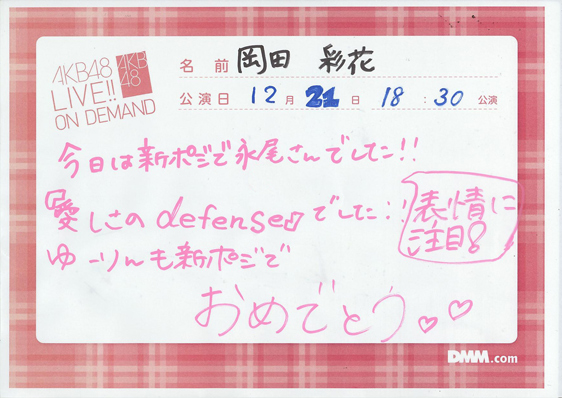 AKB48
LIVE!!
ON DEMAND
AKB
48
名前 岡田 彩花
公演日 12月 21日 18:30 公演
今日は新ポジで永尾さんでした!!
『愛しさのdefense』でした!!
表情に
注目♪
ゆーりんも新ポジで
おめでとう♡♡
DMM.com